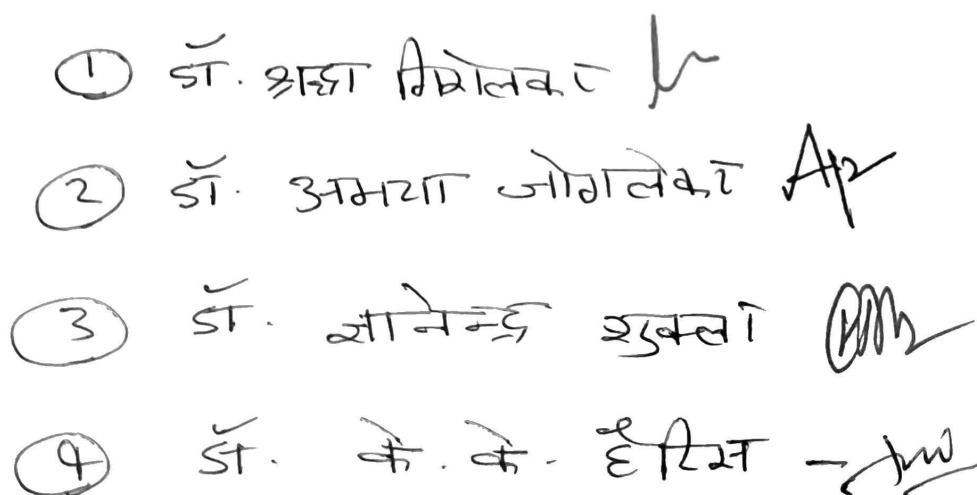 ① डॉ. श्रद्धा मिरोलकर
② डॉ. अभया जोगलेकर
③ डॉ. ज्ञानेन्द्र शुक्ला
④ डॉ. के. के. हैरिस -